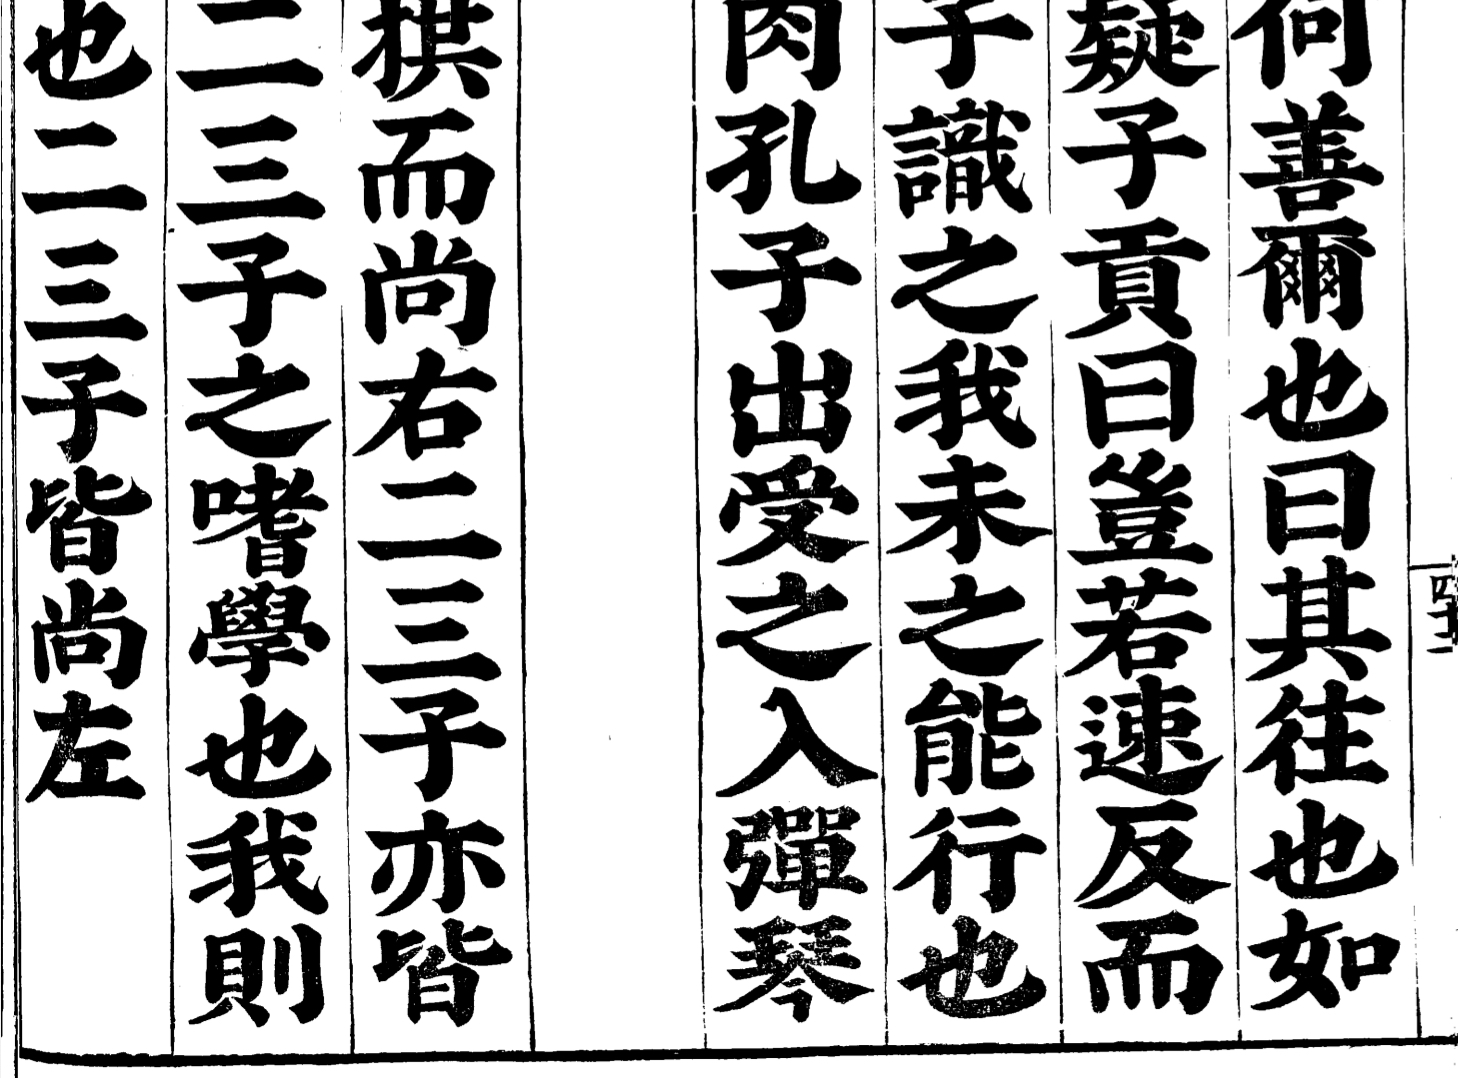 何善爾也曰其往也如
疑子貢曰豈若速反而
子識之我未之能行也
肉孔子出受之入彈琴
拱而尚右二三子亦皆
二三子之嗜學也我則
也二三子皆尚左